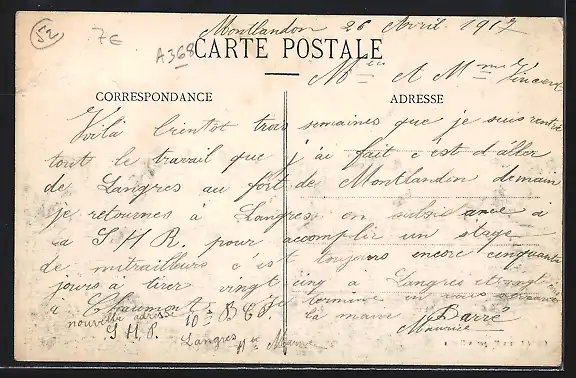 52
7E
A368
Montlandon 26 Avril 1917
CARTE POSTALE
Mr et Mme Vincent
CORRESPONDANCE
ADRESSE
Voilà bientot trois semaines que je suis rentré
tout le travail que j'ai fait c'est d'aller
de Langres au fort de Montlandon demain
je retournes à Langres en subsistance à
a S H R. pour accomplir un stage
de mitrailleurs c'est toujours encore cinquante
jours à tirer vingt cinq a Langres et vingt
à Chaumont Je termine en vous serrant
la main Barré
Maurice
nouvelle adresse 10e B C P.
S. H. R. Langres Hte Marne